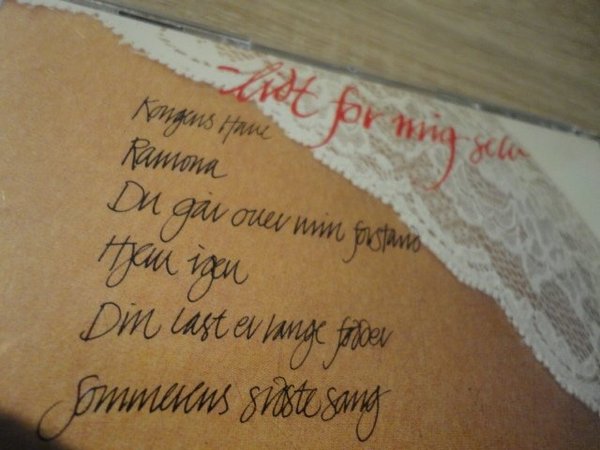 -lidt for mig selv
Kongens Have
Ramona
Du går over min forstand
Hjem igen
Din last er lange fødder
Sommerens sidste sang